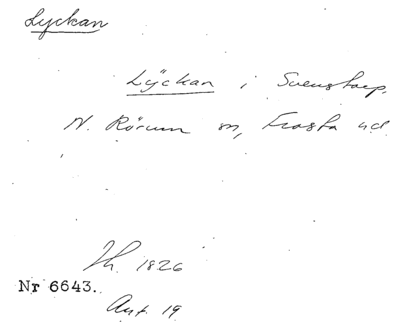 Lyckan
Lÿckan i Svenstorp,
N. Rörum sn, Frosta hd
Th. 1826
Nr 6643.
Ant. 19